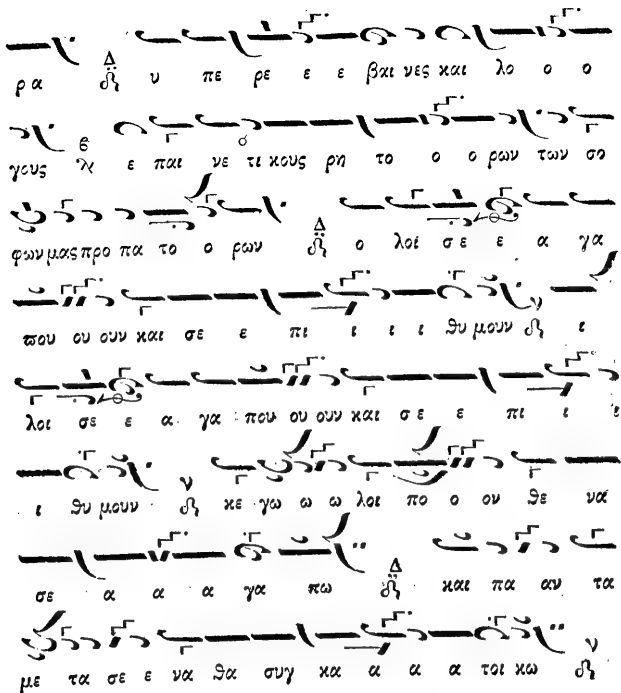 ρα Δ υ πε ρε ε ε βαι νες και λο ο ο
γους ε παι νε τι κους ρη το ο ο ρων των σο
φων μας προ πα το ο ρων Δ ο λοί σε ε α γα
που ου ουν και σε ε πι ι ι ι θυ μουν ν ι
λοι σε ε α γα που ου ουν και σε ε πι ι ι
ι θυ μουν ν κε γω ω ω λοι πο ο ον θε να
σε α α α γα πω Δ και πα αν τα
με τα σε ε να θα συγ κα α α α τοι κω ν